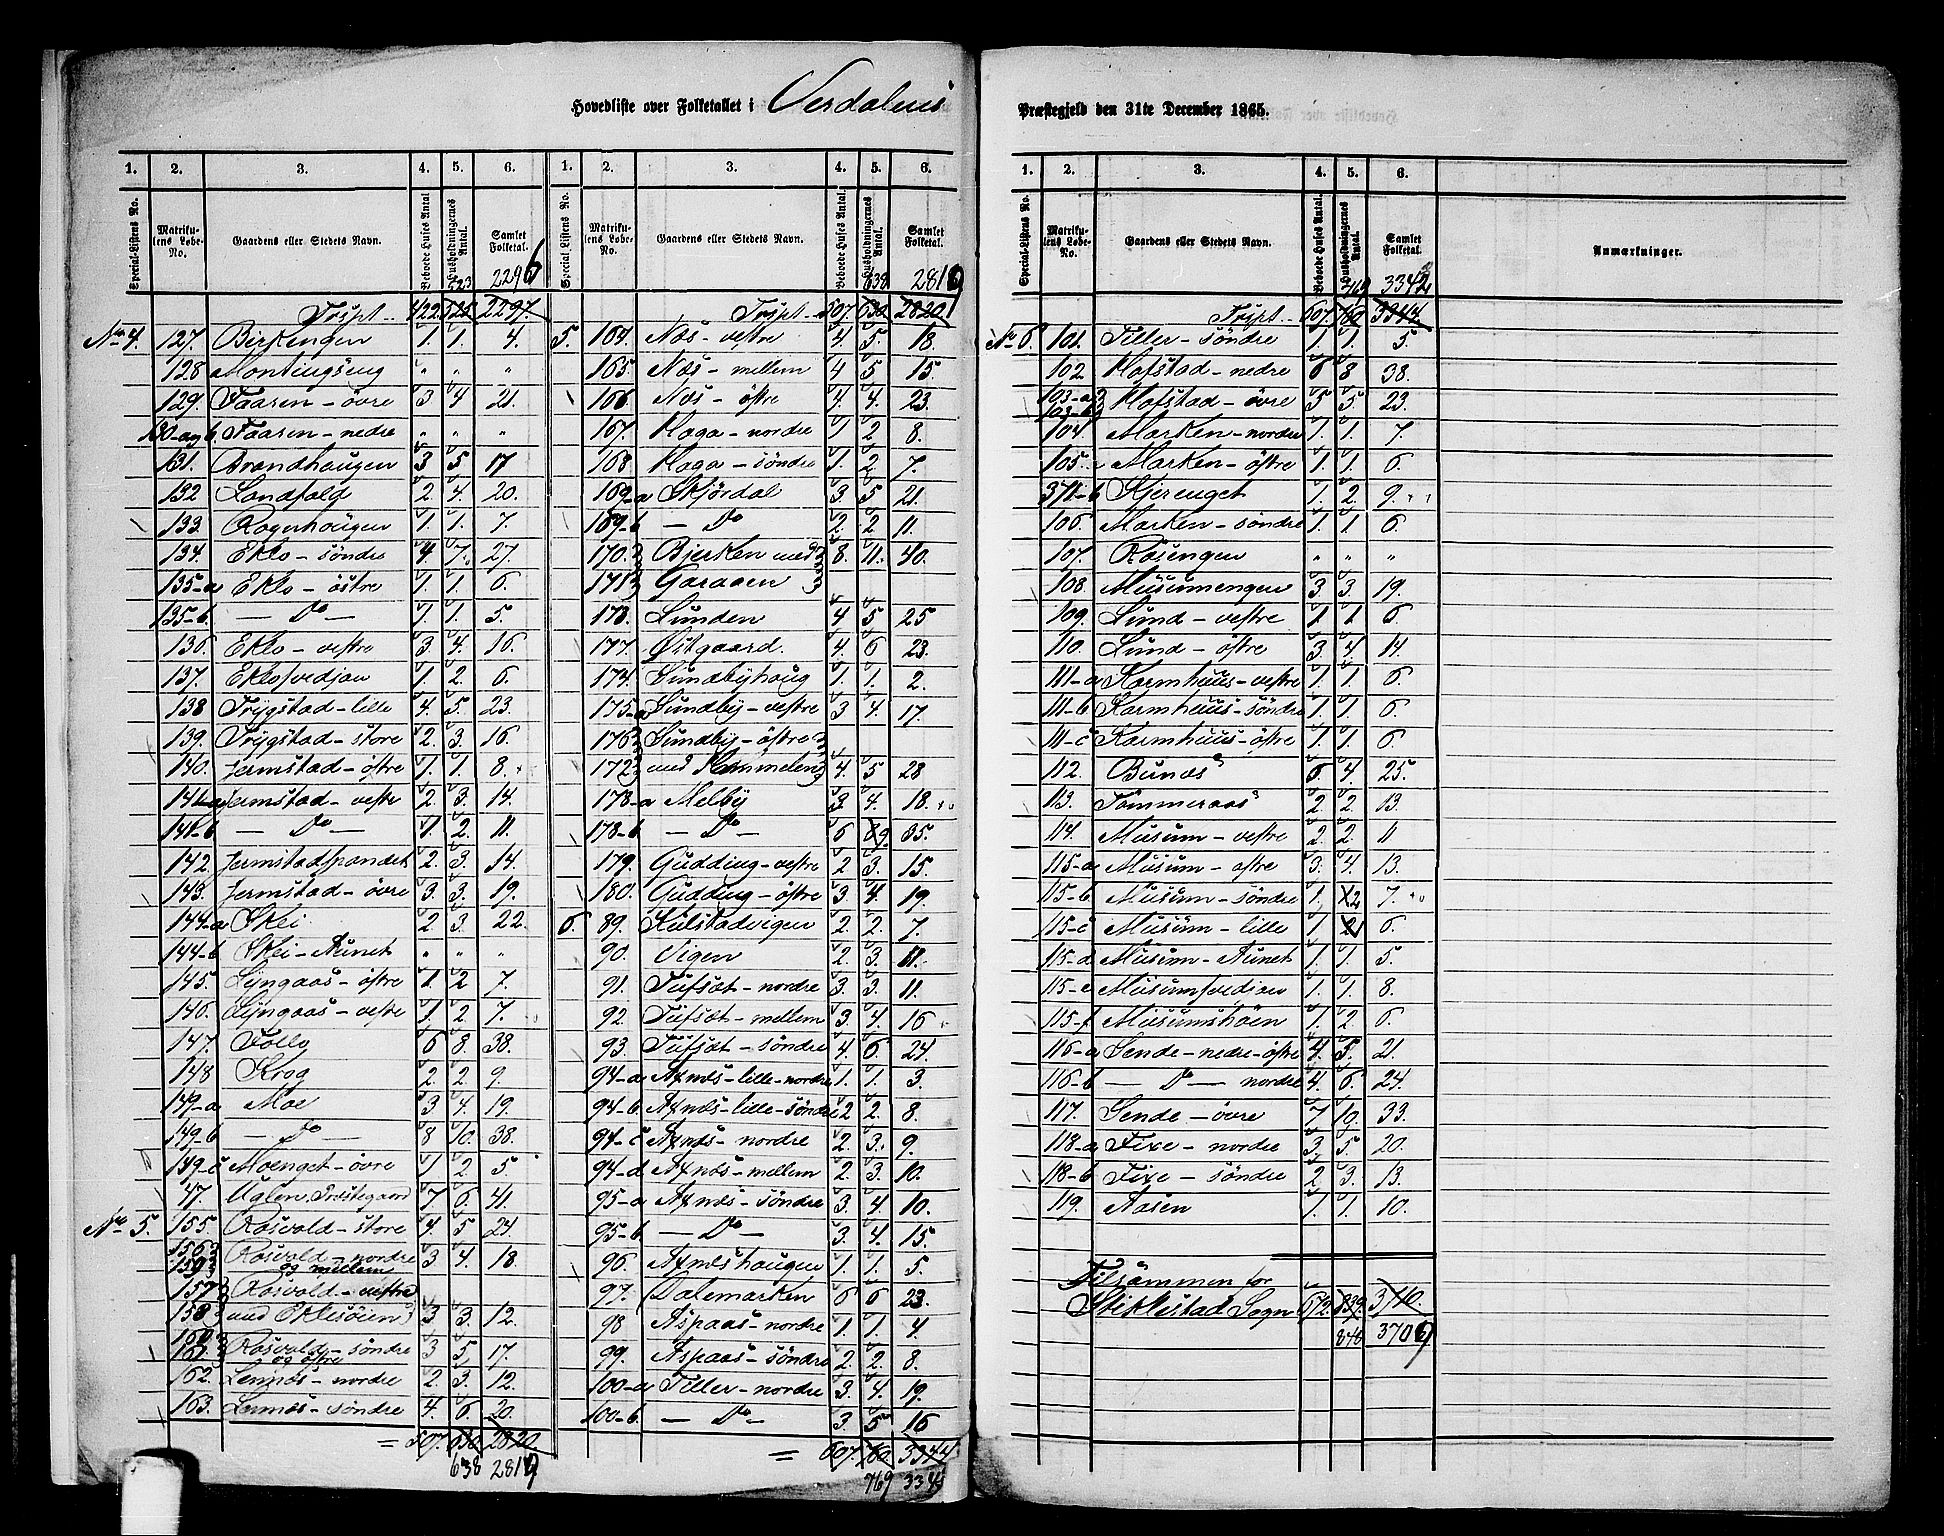 Hovedliste over Folketallet i Verdalens Præstegjeld den 31te December 1865.
1. 2. 3. 4. 5. 6.
Special-Listens No. Matrikulens Løbe-No. Gaardens eller Stedets Navn. Beboede Huses Antal Husholdningernes Antal. Samlet Folketal.
523 2296
Trspt. 422. 520. 2297.
No 4. 127. Birkengen 1. 1. 4.
128 Montingseng " " "
129. Faaren - övre 3 4 21.
130-a og b. Faaren - nedre " " "
131. Brandhaugen 3 5 17
132 Landfald 2. 4. 20.
133. Rognhaugen 1. 1. 7.
134. Eklo - söndre 4 7. 27.
135-a Eklo - östre 1. 1. 6.
135-b. - Do - 1. 1. 5.
136. Eklo - vestre 3. 4. 16.
137. Eklosvedjan 1 2. 6.
138 Trygstad - lille 4. 5. 23.
139. Trygstad - store 2. 3. 16.
140. Jermstad - östre 1. 1. 8.
141-a Jermstad - vestre 2. 3. 14.
141-b - Do - 1. 2. 11.
142. Jermstadspandet 2. 3. 14
143. Jermstad - övre 3. 3. 19.
144-a Skei 2 3. 22.
144-b Skei - Aunet " " "
145. Lyngaas - östre 1. 2 7.
146. Lyngaas - vestre 1. 2 7.
147. Follo 6 8. 38.
148 Krag 2. 2. 9.
149-a Moe 3 4. 19.
149-b - Do - 8 10. 38.
149-c Moenget - övre 1 2. 5
47. Ualen, Præstegaard 7 6. 41.
No 5. 155 Rosvold - store 4. 5 24.
156 159 Rosvold - nordre og mellem 3 4. 18.
157 Rosvold - vestre
158 med Eklesöien 3 3. 12.
160 161 Rosvold - söndre og östre 3 5, 17.
162. Lennes - nordre 2. 3. 12.
163. Lennes - söndre 4. 6. 20.
= 507. 630. 2820.
638 2819
1. 2. 3. 4. 5. 6.
Special Listens No. Matrikulens Løbe-No. Gaardens eller Stedets Navn. Beboede Huses Antal. Husholdningernes Antal. Samlet Folketal.
638 2819
Trspt. 507. 630. 2820
5. 164. Næs - vestre 4. 5. 18.
165. Næs - mellem 4 5 15.
166. Næs - östre 4 4. 23.
167. Haga - nordre 1 2 8.
168. Haga - söndre 1. 2. 7.
169-a Skjördal 3. 5 21.
169-b - Do 2. 2 11.
170. Bjerken med 8. 11. 40.
171 Garaaen
173. Lunden 4 5 25
177. Östgaard. 4. 6 23.
174. Sundbyhaug 1. 1. 2.
175-a Sundby - vestre 3 4. 17.
176 Sundby - östre
172 med Hammelen 4. 5 28
178-a Melby 3. 4. 18.
178-b - Do - 6 9. 35.
179. Gudding - vestre 2 3. 15.
180. Gudding - östre 3 4. 19.
6. 89. Kulstadvigen 2. 2. 7.
90. Vigen 2 3. 11.
91. Tufsæt - nordre 3. 3. 11.
92. Tufsæt - mellem 3. 4. 16
93. Tufsæt - söndre 4. 6. 24.
94-a Axnæs - lille - nordre 1. 1. 3.
94-b. Axnæs - lille - söndre 2 2. 8.
94-c Axnæs - nordre 2. 3. 9.
94-d Axnæs - mellem 2. 3. 10.
95-a Axnæs - söndre 3. 4. 10.
95-b - Do - 3. 4. 15.
96. Axnæshaugen 1. 1. 5.
97. Dalemarken 6 6 23.
98 Aspaas - nordre 1. 1. 4.
99. Aspaas - söndre 2. 2. 8.
100-a Tiller - nordre 3. 4. 19.
100-b. - Do - 3. 5 16
= 607. 760. 3344
769 334
1. 2. 3. 4. 5. 6.
Special-Listens No. Matrikulens Løbe-No. Gaardens eller Stedets Navn. Beboede Huses Antal. Husholdningernes Antal. Samlet Folketal. Anmærkninger.
769 3342
Trspt. 607. 760 3344.
No 6. 101. Tiller - söndre 1. 1 5.
102. Hofstad - nedre 6 8 38.
103-a 103-b Hofstad - övre 5 5. 23.
104. Marken - nordre 1. 1. 7.
105. Marken - östre 1. 1. 6.
371-b Kjerenget 1. 2. 9.
106. Marken - söndre 1. 1 6.
107. Rosengen " " "
108 Musumengen 3 3. 19.
109. Lund - vestre 1 1 6
110. Lund - östre 3. 4. 14.
111-a Karmhuus - vestre 1 1 6
111-b Karmhuus - söndre 1. 1. 6.
111-c Karmhuus - östre 1. 1. 6.
112. Bunæs 6. 4. 25.
113. Tommeraas 2 2. 13.
114. Musum - vestre 2. 2. 11
115-a Musum - östre 3. 4. 13.
115-b Musum - söndre 1. 2 7.
115-c Musum - lille 1. 6.
115-d Musum - Aunet 1. 1. 5.
115-e Musumsvedjan 1. 1. 8.
115-f Musumshöen 1. 2. 6.
116-a Sende - nedre - östre 4. 5. 21.
116-b - Do - nordre 4. 6. 24.
117. Sende - övre 7 10. 33.
118-a Fixe - nordre 3. 5. 20.
118-b Fixe - söndre 2 3. 13.
119. Aasen 1. 1. 10.
Tilsammen for
Stiklestad Sogn 672. 839. 3710.
848 3709